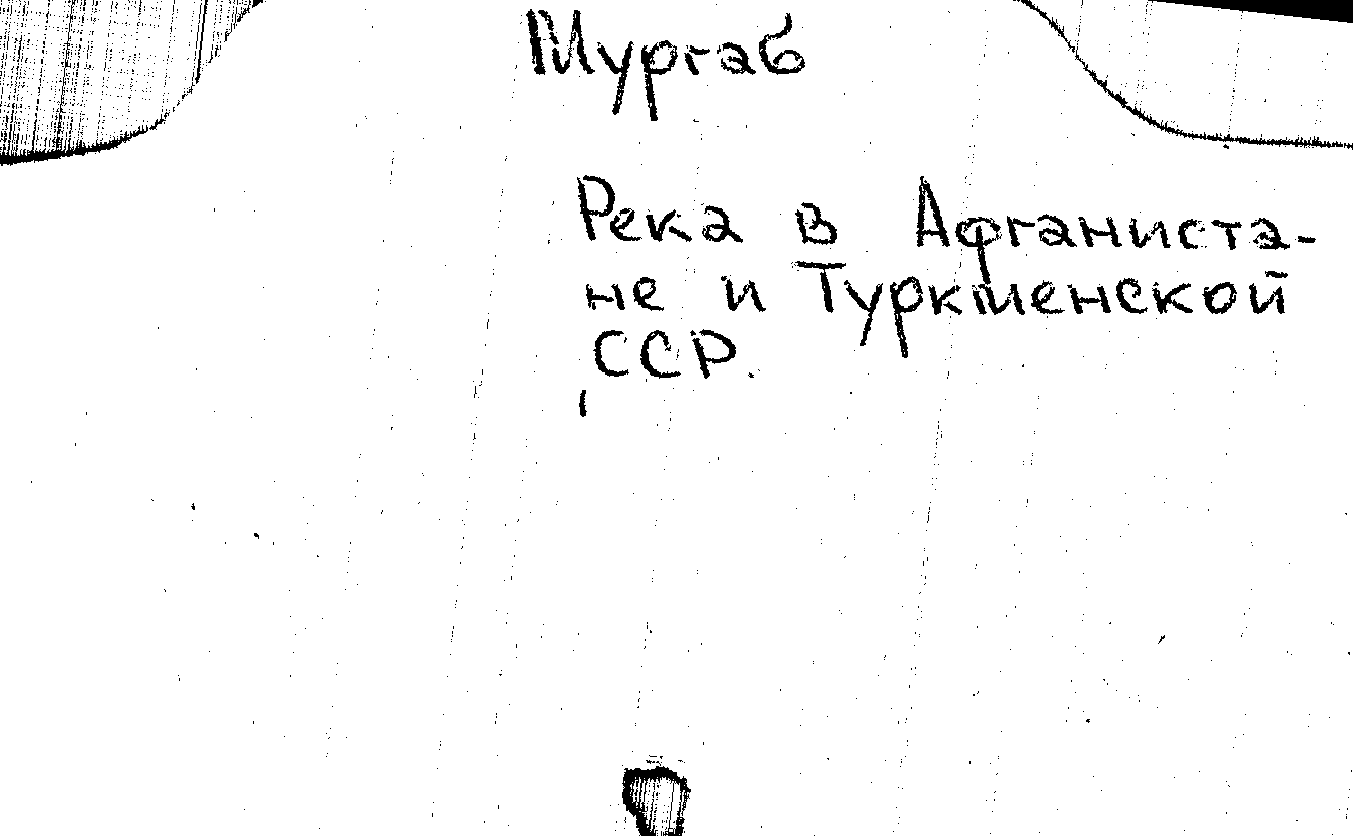 Мургаб
Река в Афганиста-
не и Туркменской
ССР.